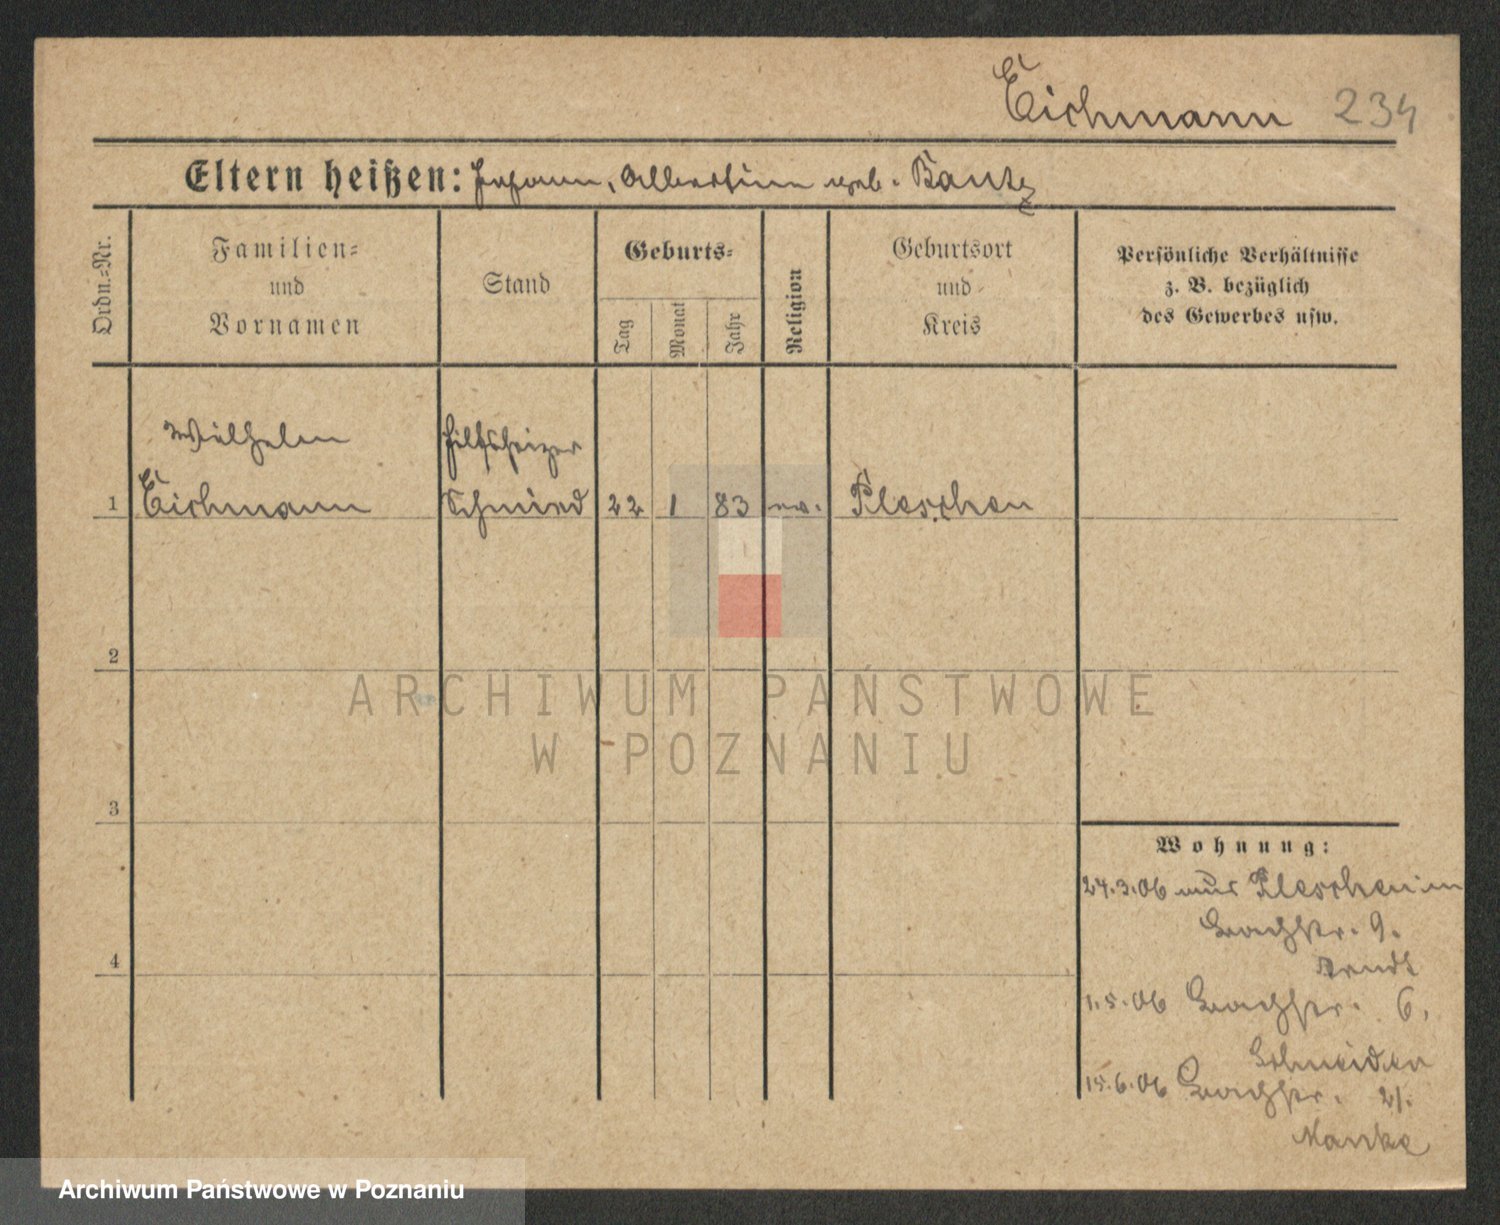 Eichmann 234
Eltern heißen: Johann, Albertine geb. Bautz
Ordn.-Nr.
Familien-
und
Vornamen
Stand
Geburts-
Tag
Monat
Jahr
Religion
Geburtsort
und
Kreis
Persönliche Verhältnisse
z. B. bezüglich
des Gewerbes usw.
Wilhelm
Hilfsheizer
1 Eichmann Schmied 22 1 83 ev. Pleschen
2
ARCHIWUM PAŃSTWOWE
W POZNANIU
3
4
Wohnung:
24.3.06 aus Pleschen in
9.
Arndt
1.5.06 6.
Schneider
15.6.06 21.
Manke
Archiwum Państwowe w Poznaniu